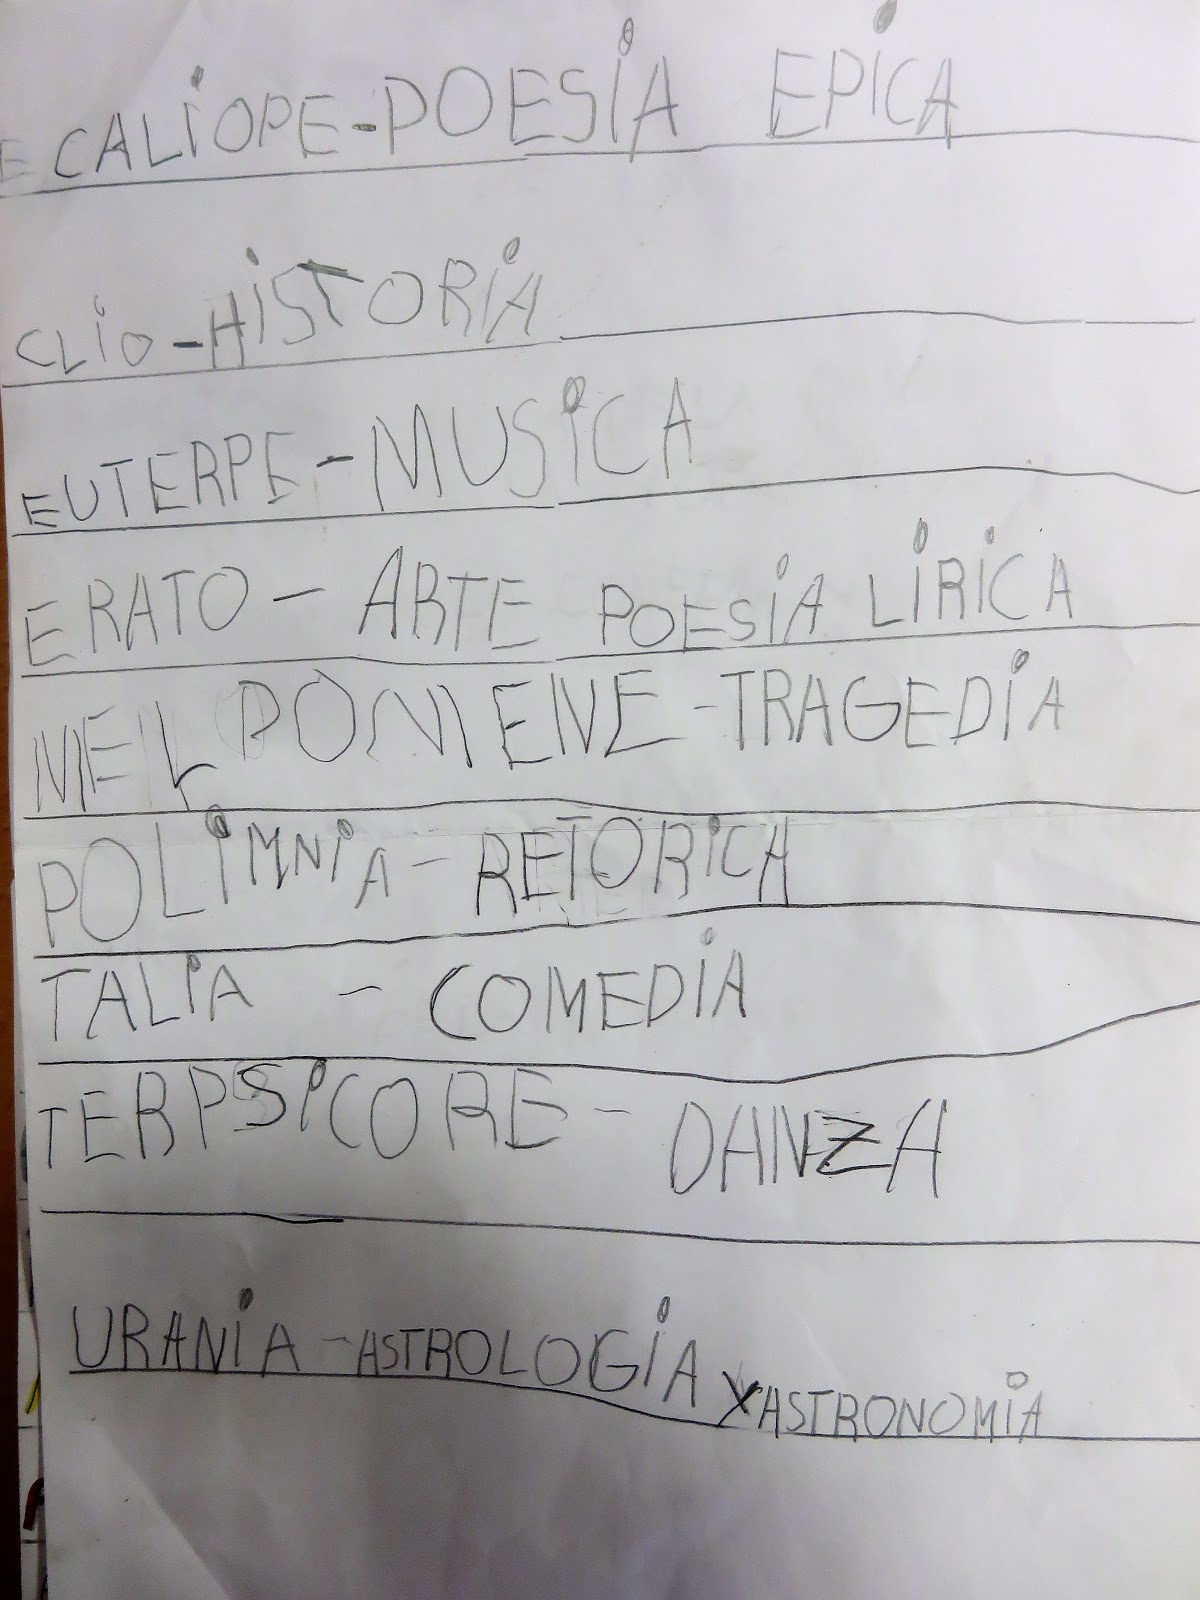 E CALIOPE-POESIA EPICA
CLIO-HISTORIA
EUTERPE-MUSICA
ERATO - ARTE POESIA LIRICA
MELPOMENE-TRAGEDIA
POLIMNIA-RETORICA
TALIA - COMEDIA
TERPSICORE - DANZA
URANIA-ASTROLOGIA Y ASTRONOMIA